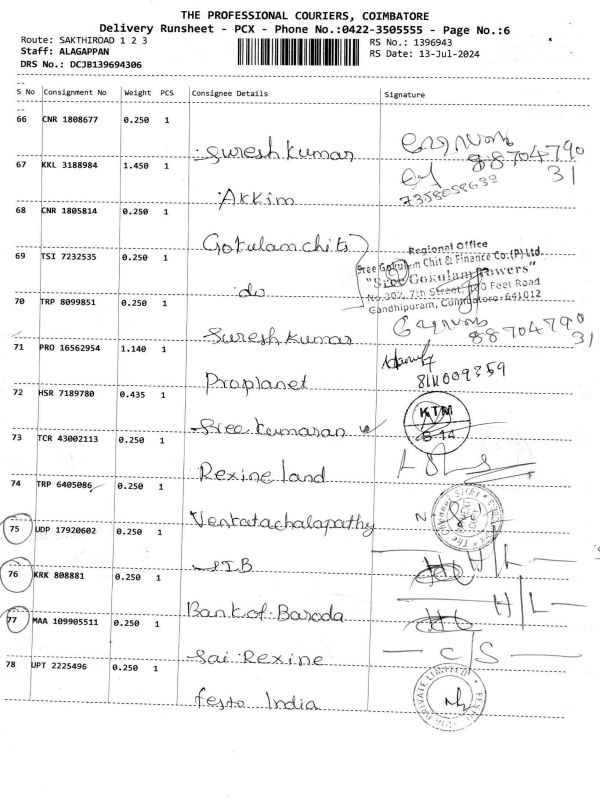 THE PROFESSIONAL COURIERS, COIMBATORE
Delivery Runsheet - PCX - Phone No.:0422-3505555 - Page No.:6
Route: SAKTHIROAD 1 2 3
RS No.: 1396943
Staff: ALAGAPPAN
RS Date: 13-Jul-2024
DRS No.: DCJB139694306
S No Consignment No Weight PCS Consignee Details Signature
66 CNR 1808677 0.250 1 Suresh kumar
88704790
31
67 KKL 3188984 1.450 1 Akkim
7358058632
68 CNR 1805814 0.250 1 Gokulam chits
Regional Office
Sree Gokulam Chit & Finance Co.(P) Ltd.
"Sree Gokulam Towers"
No.307, 7th Street, 100 Feet Road
Gandhipuram, Coimbatore-641012
69 TSI 7232535 0.250 1 do
70 TRP 8099851 0.250 1 Suresh kumar
88704790
31
71 PRO 16562954 1.140 1 Proplanet
8111009359
72 HSR 7189780 0.435 1 Sree kumaran
KTM
S-14
73 TCR 43002113 0.250 1 Rexine land
74 TRP 6405086 0.250 1 Venkatachalapathy
75 UDP 17920602 0.250 1 SIB
H/L
76 KRK 808881 0.250 1 Bank of Baroda
H/L
77 MAA 109905511 0.250 1 Sai Rexine
C/S
78 UPT 2225496 0.250 1 festo India
PRIVATE LIMITED